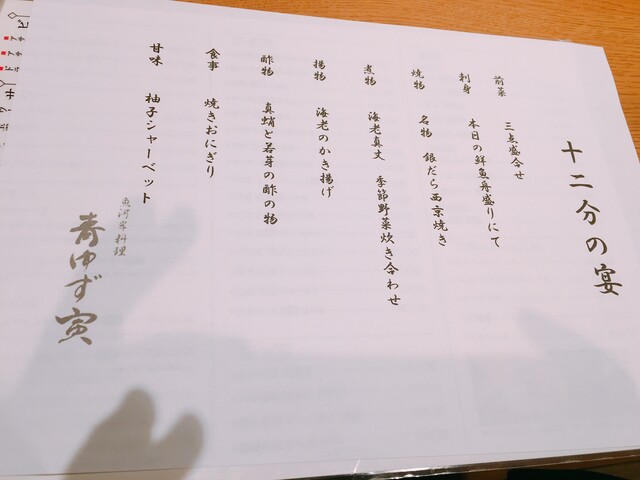 十二分の宴
前菜 三点盛合せ
刺身 本日の鮮魚舟盛りにて
焼物 名物 銀だら西京焼き
煮物 海老真丈 季節野菜炊き合わせ
揚物 海老のかき揚げ
酢物 真蛸と若芽の酢の物
食事 焼きおにぎり
甘味 柚子シャーベット
魚河岸料理
青ゆず寅